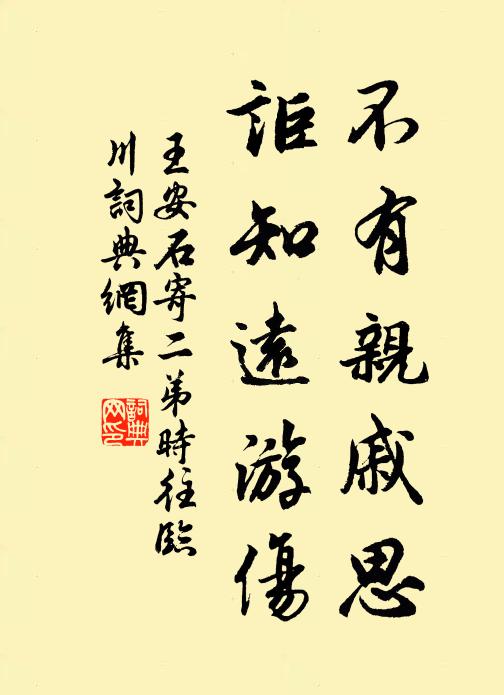 不有親戚思
詎知遠游傷
王安石寄二弟時往臨
川詞典網集
詞典
网印